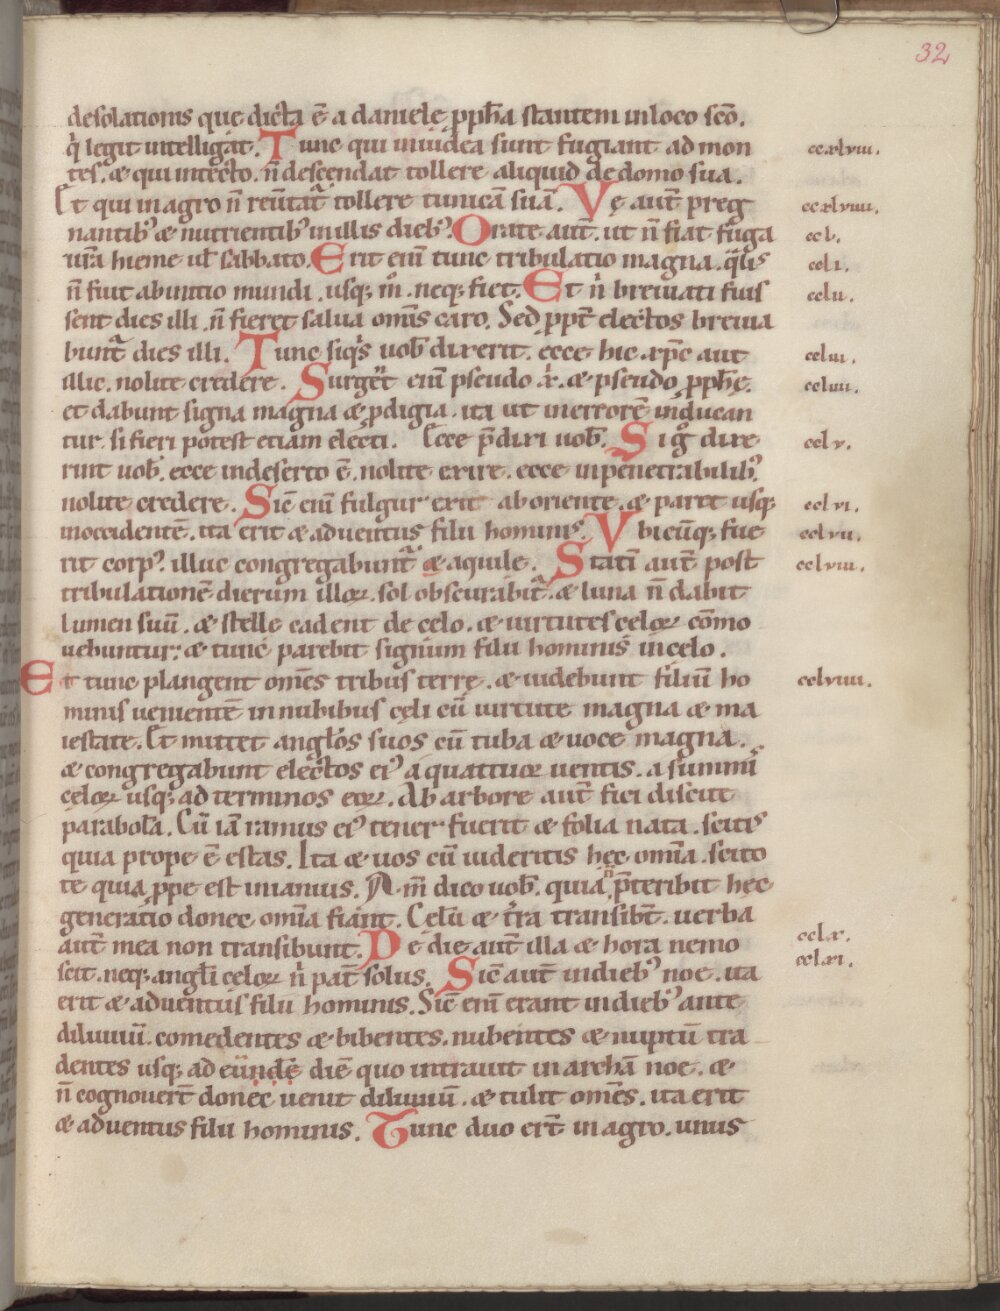 32
desolationis que dicta ē a daniele ꝓph̄a stantem in loco sc̄o.
q̇ legit intelligat. Tunc qui in iudea sunt fugiant ad mon ccxlviii.
tes. & qui in tecto. n̄ descendat tollere aliquid de domo sua.
Et qui in agro n̄ reūtat᷑ tollere tunicā suā. Vę aut̄ pręg ccxlviiii.
nantib; & nutrientib; in illis dieb; Orate aut̄. ut n̄ fiat fuga ccl.
ur̄a hieme ul̄ sabbato. Erit eni᷑ tunc tribulatio magna. q̄lis ccli.
n̄ fuit ab initio mundi. usq; m̊. neq; fiet. Et n̄ breuiati fuis cclii.
sent dies illi. n̄ fieret salua om̄s caro. Sed ꝓpt̄ electos breuia
bunt᷑ dies illi. Tunc siq̇s uob̄ dixerit. ecce hic xp̄c aut ccliii.
illic. nolite credere. Surgēt eni᷑ pseudo xr̄. & pseudo ꝓph̄ę. ccliiii.
et dabunt signa magna & ꝓdigia. ita ut in errorē inducan
tur. si fieri potest etiam electi. Ecce p̄dixi uob̄. Si g̊ dixe cclv.
rint uob̄. ecce in deserto ē. nolite exire. ecce in penetrabilib;
nolite credere. Sic̄ eni᷑ fulgur exit ab oriente. & paret usq; cclvi.
in occidentē. ita erit & aduentus filii hominis. Vbicūq; fue cclvii.
rit corp; illuc congregabunt᷑ & aquile. Statī aut̄ post cclviii.
tribulationē dierum illoꝝ. sol obscurabit᷑. & luna n̄ dabit
lumen suū. & stelle cadent de celo. & uirtutes celoꝝ cōmo
uebuntur; & tunc parebit signum filii hominis in celo.
Et tunc plangent om̄s tribus terrę. & uidebunt filiū ho cclviiii.
minis uenientē in nubibus cęli cū uirtute magna & ma
iestate. Et mittet angl̄os suos cū tuba & uoce magna.
& congregabunt electos ei᷒ a quattuor uentis. a summi
cęloꝝ usq; ad terminos eoꝝ. Ab arbore aut̄ fici discit
parabolā. Cū iā ramus ei᷒ tener fuerit & folia nata. scitis
quia prope ē ęstas. Ita & uos cū uideritis hęc om̄ia. scito
te quia ꝓpe est in ianuis. Am̄ dico uob̄. quia n̄ p̄teribit hec
generatio donec om̄ia fiant. Celū & t̄ra transibt̄. uerba
aut̄ mea non transibunt. De die aut̄ illa & hora nemo cclx.
scit. neq; angl̄i celoꝝ n̄ pat̄ solus. Sic̄ aut̄ in dieb; noe. ita cclxi.
erit & aduentus filii hominis. Sic̄ eni᷑ erant in dieb; ante
diluuiū. comedentes & bibentes. nubentes & nuptū tra
dentes usq; ad eundē diē quo intrauit in archā noe. &
n̄ cognouer̄t donec uenit diluuiū. & tulit om̄es. ita erit
& aduentus filii hominis. Tunc duo er̄t in agro. unus